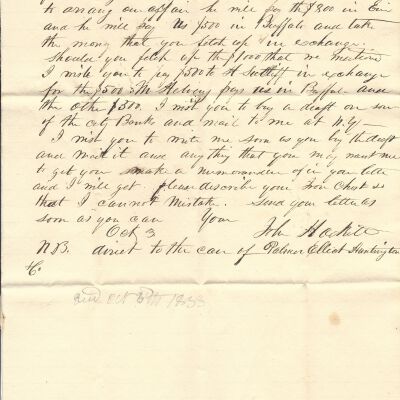 to arrang an affair he will pay th $300 in Erie
and he will pay us $500 in Buffalo and take
the money that you fetch up in exchange.
Should you fetch up the $1000 that we mentiond
I wish you to pay $500 to H in exchange
for the $500 Mr pays us in Buffalo and
the other $500. I wish you to buy a draft on some
of the city Banks and mail to me at N.Y.
I wish you to write me soon as you buy the draft
and mail it and any thing that you may want me
to get you make a memorandum of in your letter
and I will get. please describe your Iron Chest so
that I cannot mistake. Send your letter as
soon as you can Your
Oct 3 John
N.B. direct to the care of Palmer Elliot Huntington
&c.
Oct 1833